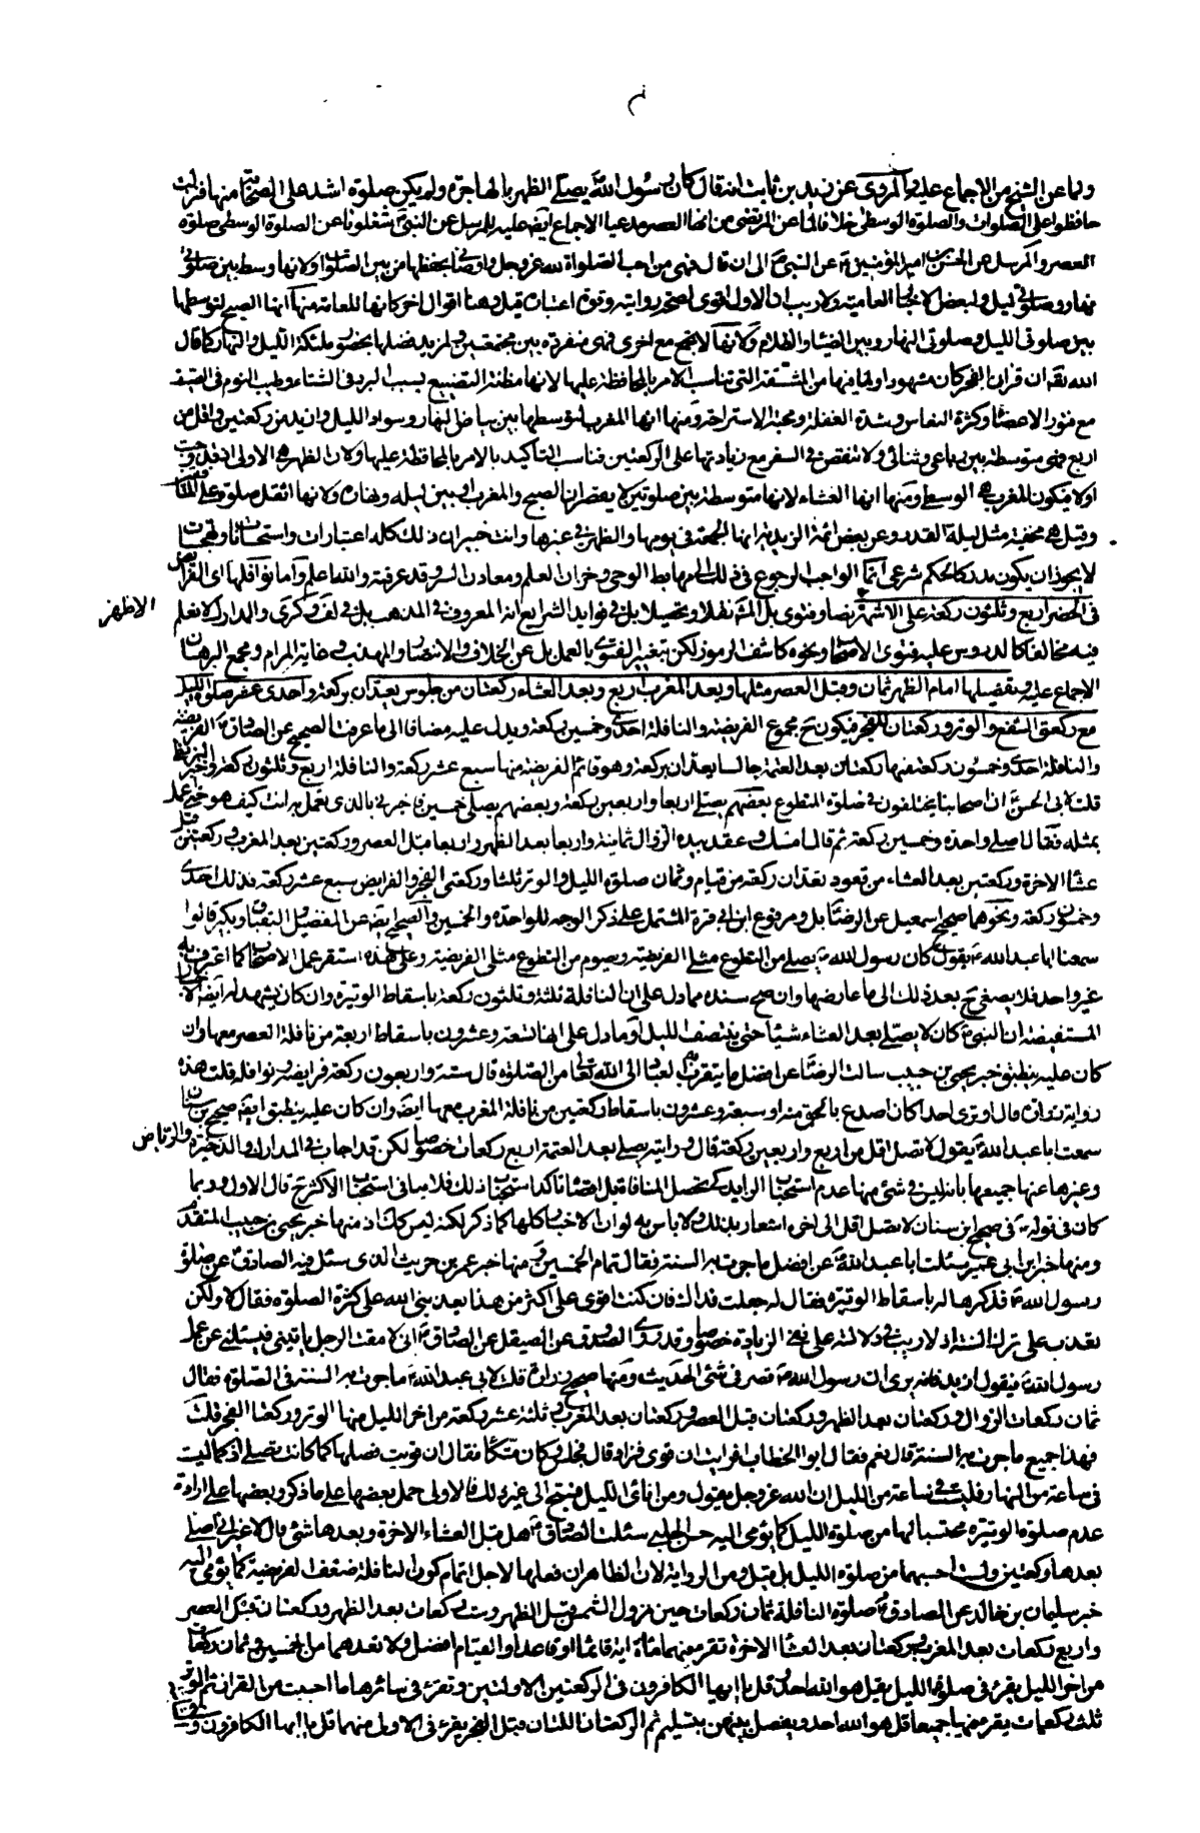 ولما عن الشيخ من الاجماع عليه والمروى عن زيد بن ثابت انه قال كان رسول الله يصلى الظهر بالهاجرة ولم يكن صلوة اشد على الصحابة منها فنزلت
حافظوا على الصلوات والصلوة الوسطى خلافا لما عن المرتضى من انها العصر مدعيا الاجماع ايضا عليه للمرسل عن النبي شغلونا عن الصلوة الوسطى صلوة
العصر والمرسل عن الحسن بن امير المؤمنين ع عن النبي ص الى ان قال فهى من احب الصلواة لله عز وجل واوصانى بحفظها من بين الصلوات ولانها وسط بين صلوتى
نهار وصلوتى ليل ولبعض الاخبار العامية ولا ريب ان الاول اقوى لصحة روايته وقوة اعتباره قيل وهنا اقوال اخر كانها للعامة منها انها الصبح لتوسطها
بين صلوتى الليل وصلوتى النهار وبين الضياء والظلام ولانها لا تجمع مع اخرى فهى منفردة بين مجتمعين ولمزيد فضلها بحضور ملئكة الليل والنهار كما قال
الله تعه ان قران الفجر كان مشهودا ولما فيها من المشقة التى تناسب الامر بالمحافظة عليها لانها مظنة التضييع بسبب البرد فى الشتاء وطيب النوم فى الصيف
مع فتور الاعضاء وكثرة النعاس وشدة الغفلة ومحبة الاستراحة ومنها انها المغرب لتوسطها بين بياض النهار وسواد الليل وازيد من ركعتين واقل من
اربع فهى متوسطة بين رباعى وثنائى ولا تنقص فى السفر مع زيادتها على الركعتين فناسب التأكيد بالامر بالمحافظة عليها ولان الظهر هى الاولى اذ قد وجبت
اولا فيكون المغرب هى الوسطى ومنها انها العشاء لانها متوسطة بين صلوتين لا يقصران الصبح والمغرب او بين ليله ونهاره ولانها اثقل صلوة على المنافقين
وقيل هى مخفية مثل ليلة القدر وعن بعض ائمة الزيدية انها الجمعة فى يومها والظهر فى غيرها وانت خبير ان ذلك كله اعتبارات واستحسانات
لا يجوز ان يكون مدركا لحكم شرعى انما الواجب الرجوع فى ذلك الى مهابط الوحى وخزان العلم ومعادن السر وقد عرفته والله اعلم واما نوافلها اى الفرائض
فى الحضر اربع وثلثون ركعة على الاشهر نصا وفتوى بل المشهور نقلا وتحصيلا بل فى فوايد الشرايع انه المعروف فى المذهب بل فى الذكرى والمدارك لا نعلم
الاظهر
فيه مخالفا كالدروس عليه فتوى الاصحاب ونحوه كاشف الرموز لكن بتغيير الفتوى بالعمل بل عن الخلاف والانتصار والمهذب وغاية المرام ومجمع البرهان
الاجماع عليه وتفصيلها امام الظهر ثمان وقبل العصر مثلها وبعد المغرب اربع وبعد العشاء ركعتان من جلوس يعدان بركعة واحدى عشر صلوة الليل
مع ركعتى الشفع والوتر وركعتان للفجر فيكون ح مجموع الفريضة والنافلة احدى وخمسين ركعة ويدل عليه مضافا الى ما عرفت الصحيح عن الصادق ع الفريضة
والنافلة احدى وخمسون ركعة منها ركعتان بعد العتمة جالسا يعدان بركعة وهو قائم الفريضة منها سبع عشر ركعة والنافلة اربع وثلثون ركعة وخبر البزنطى
قلت لابى الحسن ع ان اصحابنا يختلفون فى صلوة التطوع بعضهم يصلى اربعا واربعين ركعة وبعضهم يصلى خمسين فاخبرنى بالذى تعمل به انت كيف هو حتى اعمل
بمثله فقال اصلى واحدة وخمسين ركعة ثم قال امسك وعقد بيده الزوال ثمانية واربعا بعد الظهر واربعا قبل العصر وركعتين بعد المغرب وركعتين قبل
عشاء الاخرة وركعتين بعد العشاء من قعود تعدان ركعة من قيام وثمان صلوة الليل والوتر ثلثا وركعتى الفجر والفرايض سبع عشر ركعة فذلك احدى
وخمسون ركعة ونحوهما صحيح اسمعيل عن الرضا بل ومرفوع ابن ابى قرة المشتمل على ذكر الوجه للواحدة والخمسين والصحيح ايضا عن الفضيل والبقباق وبكير قالوا
سمعنا ابا عبد الله ع يقول كان رسول الله ص يصلى من التطوع مثلى الفريضة ويصوم من التطوع مثلى الفريضة وعلى هذه استقر عمل الاصحاب كما اعترف به
غير واحد فلا يصغى ح بعد ذلك الى ما عارضها وان صح سنده مما دل على ان النافلة ثلثة وثلثون ركعة باسقاط الوتيرة وان كان يشهد له ايضا الاخبار
المستفيضة ان النبي ص كان لا يصلى بعد العشاء شيئا حتى ينتصف الليل او ما دل على انها تسعة وعشرون باسقاط اربعة من نافلة العصر معها وان
كان عليه ينطبق خبر يحيى بن حبيب سالت الرضا عن افضل ما يتقرب به العباد الى الله تعالى من الصلوة قال ستة واربعون ركعة فرايضه ونوافله قلت هذه
رواية زرارة قال اوترى احدا كان اصدع بالحق منه او سبعة وعشرون باسقاط ركعتين من نافلة المغرب معها ايضا وان كان عليه ينطبق ايضا صحيح بن سنان
سمعت ابا عبد الله ع يقول لا تصل اقل من اربع واربعين ركعة قال ورايته يصلى بعد العتمة اربع ركعات خصوصا لكن قد اجاب فى المدارك والذخيرة والرياض
وغيرها عنها جميعها بانه ليس فى شئ منها عدم استحباب الزايد كى تحصل المنافاة قبل اقتضاء تاكد استحباب ذلك فلا ينافى استحباب الاكثر ح قال الاول وربما
كان فى قوله ع فى صحيح ابن سنان لا تصل اقل الى اخره اشعار بذلك ولا باس به لو ان الاخبار كلها كما ذكر لكنه ليس كك اذ منها خبر يحيى بن حبيب المتقدم
ومنها خبر ابن ابى عمير سئلت ابا عبد الله ع عن افضل ما جرت به السنة فقال تمام الخمسين ومنها خبر عمر بن حريث الذى سئل فيه الصادق ع عن صلوة
رسول الله ص فذكرها له باسقاط الوتيرة فقال له جعلت فداك فان كنت اقوى على اكثر من هذا يعذبنى الله على كثرة الصلوة فقال لا ولكن
يعذب على ترك السنة اذ لا ريب فى دلالته على نفى الزيادة خصوصا وقد روى الصدوق عن الصيقل عن الصادق ع انى لامقت الرجل ياتينى فيسئلنى عن عمل
رسول الله ص فيقول ازيد فانه يرى ان رسول الله ص قصر فى شئ الحديث ومنها صحيح زرارة قلت لابى عبد الله ع ما جرت به السنة فى الصلوة فقال
ثمان ركعات الزوال وركعتان بعد الظهر وركعتان قبل العصر وركعتان بعد المغرب وثلثة عشر ركعة من اخر الليل منها الوتر وركعتا الفجر قلت
فهذا جميع ما جرت به السنة قال نعم فقال ابو الخطاب افرايت ان قوى فزاد قال فجلس وكان متكئا فقال ان قويت فصلها كما كانت تصلى اذ كما ليست
فى ساعة من النهار فليست فى ساعة من الليل ان الله عز وجل يقول ومن اناى الليل فسبح الى غير ذلك فالاولى حمل بعضها على ما ذكر وبعضها على ارادة
عدم صلوة الوتيرة محتسبا لها من صلوة الليل كما يؤمى اليه حسن الحلبى سئلت الصادق ع هل قبل العشاء الاخرة وبعدها شئ قال لا غير انى اصلى
بعدها ركعتين ولست احسبهما من صلوة الليل بل قيل ومن الرواية لان الظاهر ان فعلها لاجل اتمام كون النافلة ضعف الفريضة كما يؤمى اليه
خبر سليمان بن خالد عن الصادق ع صلوة النافلة ثمان ركعات حين تزول الشمس قبل الظهر وست ركعات بعد الظهر وركعتان قبل العصر
واربع ركعات بعد المغرب وركعتان بعد العشاء الاخرة تقرء فيهما مائة اية قائما او قاعدا والقيام افضل ولا تعدهما من الخمسين وثمان ركعات
من اخر الليل يقرء فى صلوة الليل بقل هو الله احد وقل يا ايها الكافرون فى الركعتين الاولتين وتقرء فى سائرها ما احببت من القران ثم الوتر
ثلث ركعات يقرء فيها جميعا قل هو الله احد ويفصل بينهن بتسليم ثم الركعتان اللتان قبل الفجر يقرء فى الاولى منهما قل يا ايها الكافرون وفى